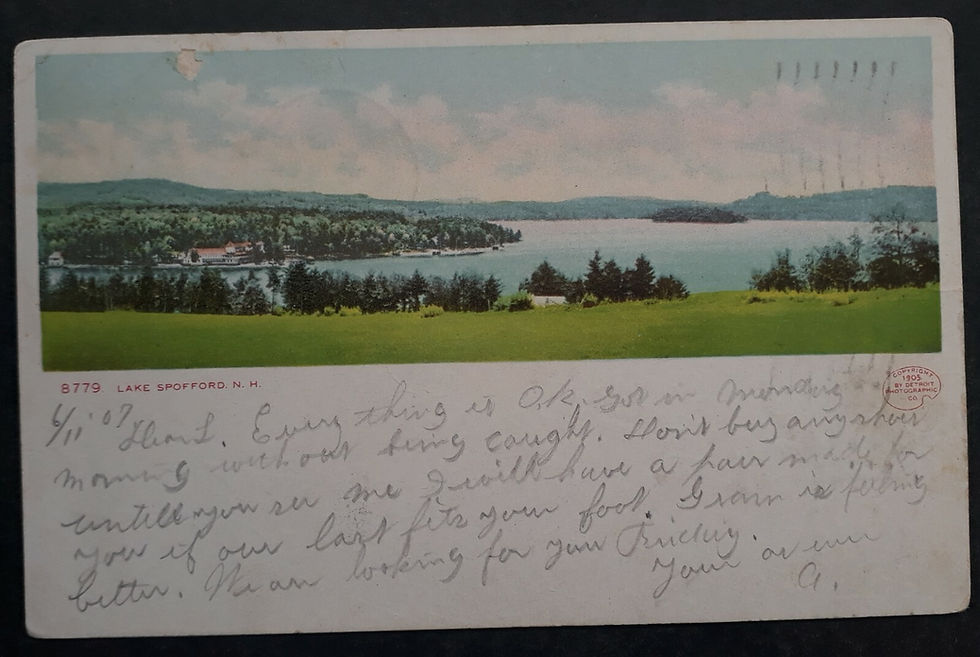 8779 LAKE SPOFFORD, N. H.
COPYRIGHT
1905
BY DETROIT
PHOTOGRAPHIC
CO.
6/11 '07 Dear L. Every thing is O.k. Got in Monday
morning without being caught. Don't buy any shoes
untill you see me I will have a pair made for
you if our last fits your foot. Gram is feeling
better. We are looking for you Friday.
Your as ever
A.